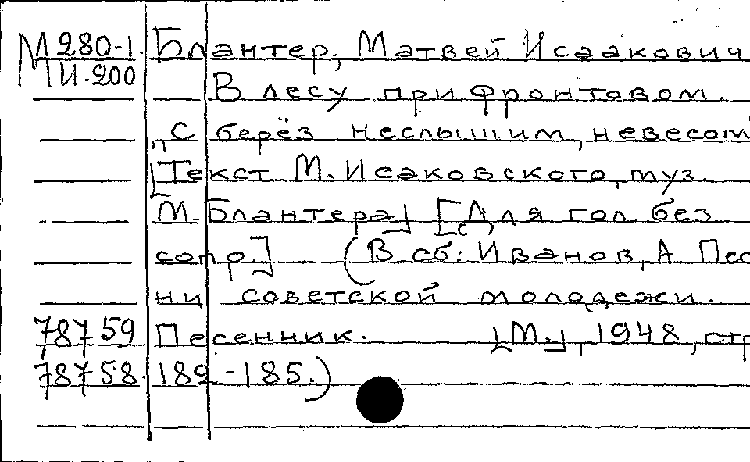 М280-1. Блантер, Матвей Исаакович
МИ-200 В лесу прифронтовом.
"С берёз неслышим, невесом
[Текст М. Исаковского, муз.
М. Блантера] [Для гол без
сопр.] (В сб: Иванов, А Пес
ни советской молодежи.
78759 Песенник. [М.], 1948, стр
78758 182-185.)